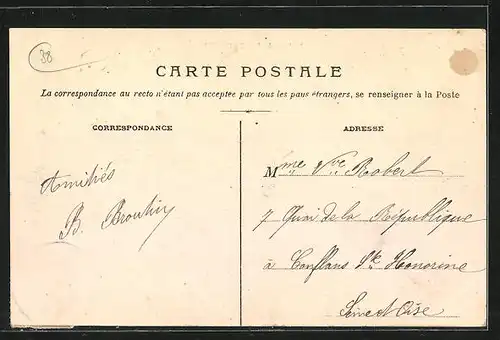 38
CARTE POSTALE
La correspondance au recto n'étant pas acceptée par tous les pays étrangers, se renseigner à la Poste
CORRESPONDANCE
ADRESSE
Amitiés
B.
Mme Vve Robert
7 Quai de la République
à Conflans Ste Honorine
Seine et Oise